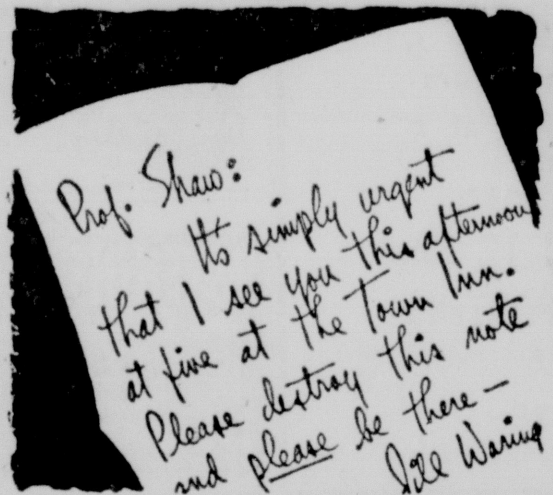 Prof. Shaw:
It's simply urgent
that I see you this afternoon
at five at the Town Inn.
Please destroy this note
and please be there—
Jill Waring